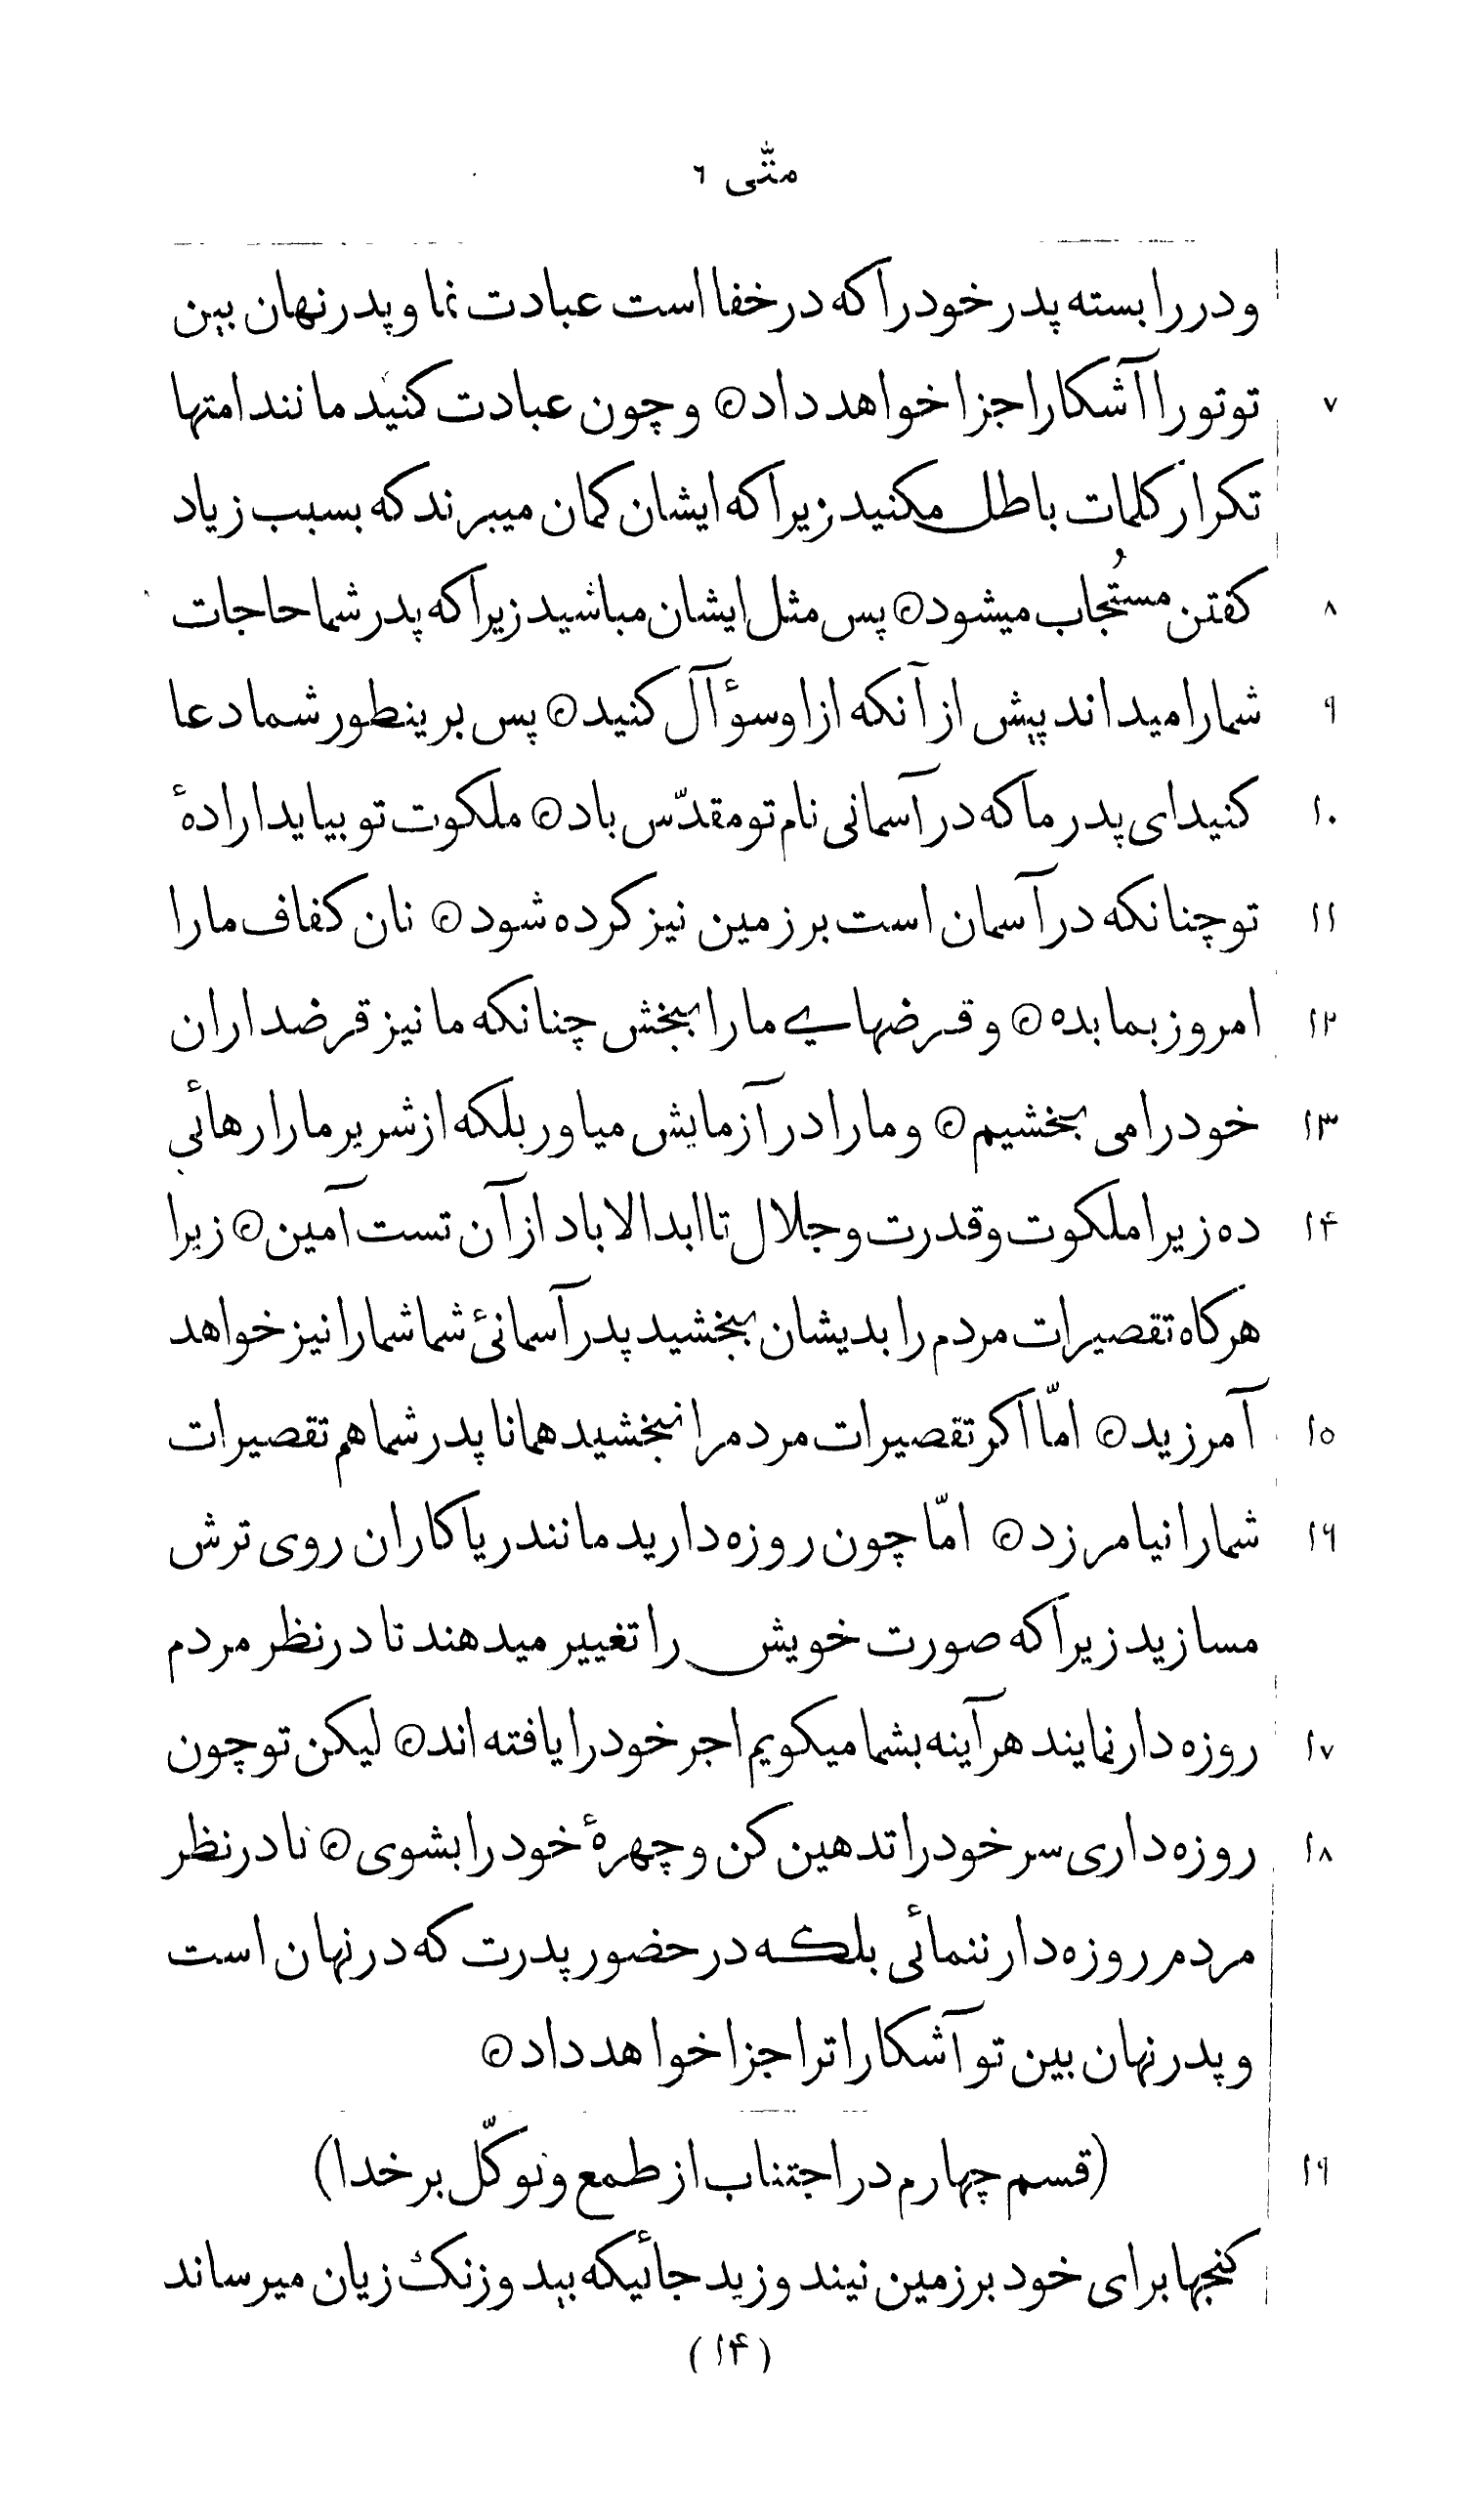 متّی ٦
ودر را بسته پدر خود را که در خفا است عبادت نما و پدر نهان بین
۷ تو تو را آشکارا جزا خواهد داد ۝ و چون عبادت کنید مانند امتها
تکرار کلمات باطل مکنید زیرا که ایشان کمان میبرند که بسبب زیاد
۸ کفتن مستُجاب میشود ۝ پس مثل ایشان مباشید زیرا که پدر شما حاجات
۹ شما را میداند پیش از آنکه از او سؤآل کنید ۝ پس برینطور شما دعا
۱۰ کنید ای پدر ما که در آسمانی نام تو مقدّس باد ۝ ملکوت تو بیاید ارادهٔ
۱۱ تو چنانکه در آسمان است بر زمین نیز کرده شود ۝ نان کفاف ما را
۱۲ امروز بما بده ۝ و قرضهاے ما را ببخش چنانکه ما نیز قرضداران
۱۳ خود را می بخشیم ۝ و ما را در آزمایش میاور بلکه از شریر ما را رهائی
۱۴ ده زیرا ملکوت و قدرت و جلال تا ابد الاباد از آن تست آمین ۝ زیرا
هر کاه تقصیرات مردم را بدیشان ببخشید پدر آسمانئ شما شما را نیز خواهد
۱۵ آمرزید ۝ امّا اکر تقصیرات مردم را نبخشید همانا پدر شما هم تقصیرات
۱۶ شما را نیامرزد ۝ امّا چون روزه دارید مانند ریاکاران روی ترش
مسازید زیرا که صورت خویش را تغییر میدهند تا در نظر مردم
۱۷ روزه دار نمایند هر آینه بشما میکویم اجر خود را یافته اند ۝ لیکن تو چون
۱۸ روزه داری سر خود را تدهین کن و چهرهٔ خود را بشوی ۝ تا در نظر
مردم روزه دار ننمائی بلکه در حضور پدرت که در نهان است
و پدر نهان بین تو آشکارا ترا جزا خواهد داد ۝
۱۹ (قسم چهارم در اجتناب از طمع و توکّل بر خدا)
کنجها برای خود بر زمین نیندوزید جائیکه بید و زنک زیان میرساند
(۱۴)